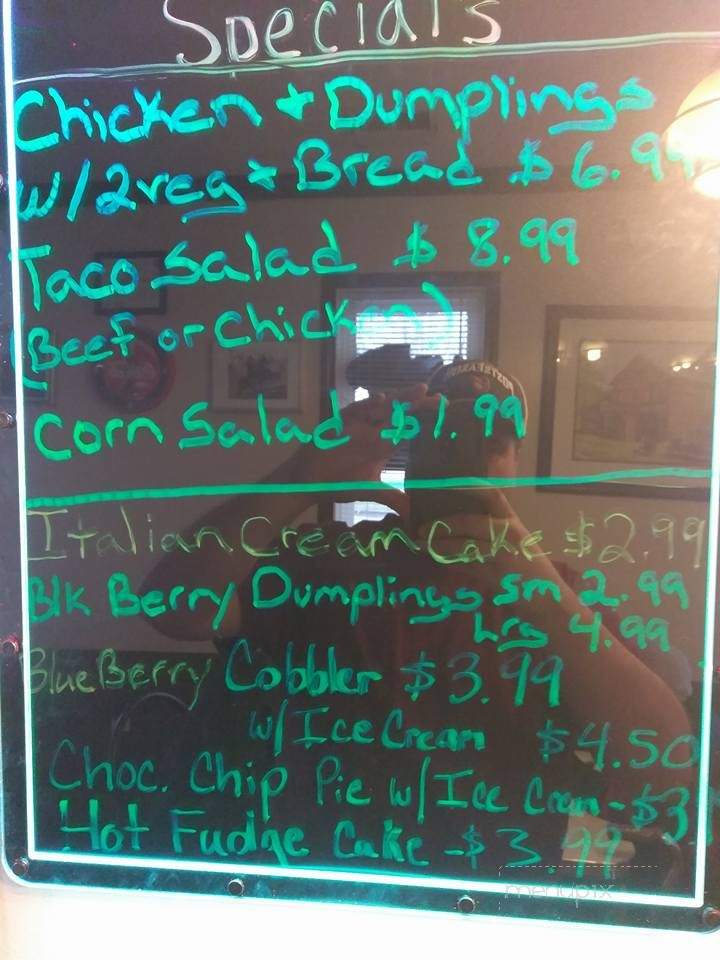 Specials
Chicken + Dumplings
w/2veg + Bread $6.99
Taco Salad $8.99
(Beef or Chicken)
Corn Salad $1.99
Italian Cream Cake $2.99
Blk Berry Dumplings sm 2.99
Lrg 4.99
Blue Berry Cobbler $3.99
w/Ice Cream $4.50
Choc. Chip Pie w/Ice Cream - $3
Hot Fudge Cake - $3.99
menupix